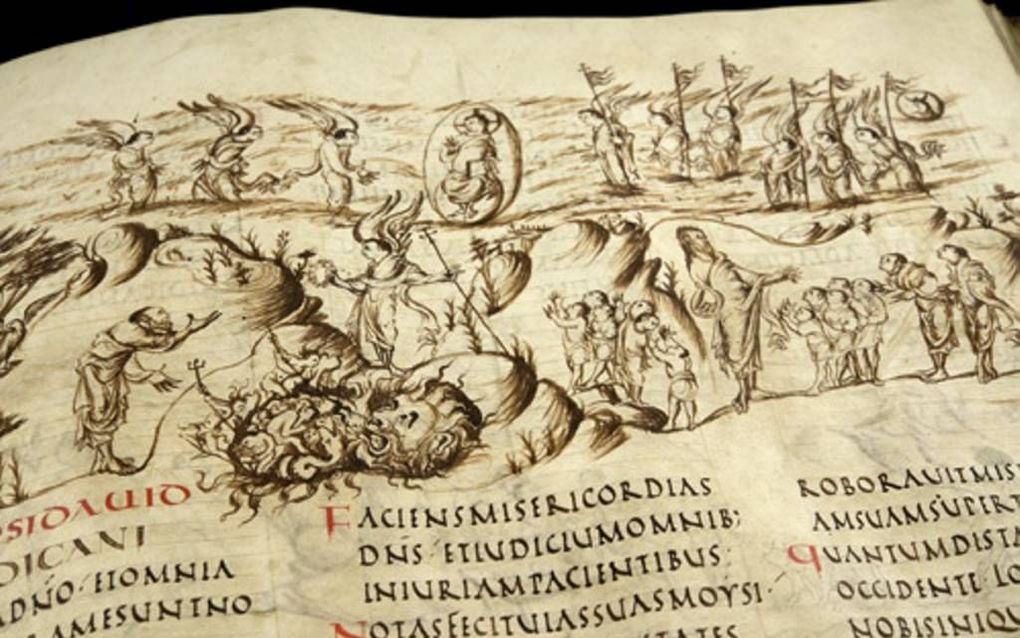 SIDAUID
DICANI
ADNO·ETOMNIA
AMESUNTINO
FACIENSMISERICORDIAS
DNS·ETIUDICIUMOMNIB;
INIURIAMPACIENTIBUS·
NOTASFECITUIASSUASMOYSI·
TATES
ROBORAUITMIS
AMSUAMSUPERT
QUANTUMDISTA
OCCIDENTE·LO
NOBISINIQ